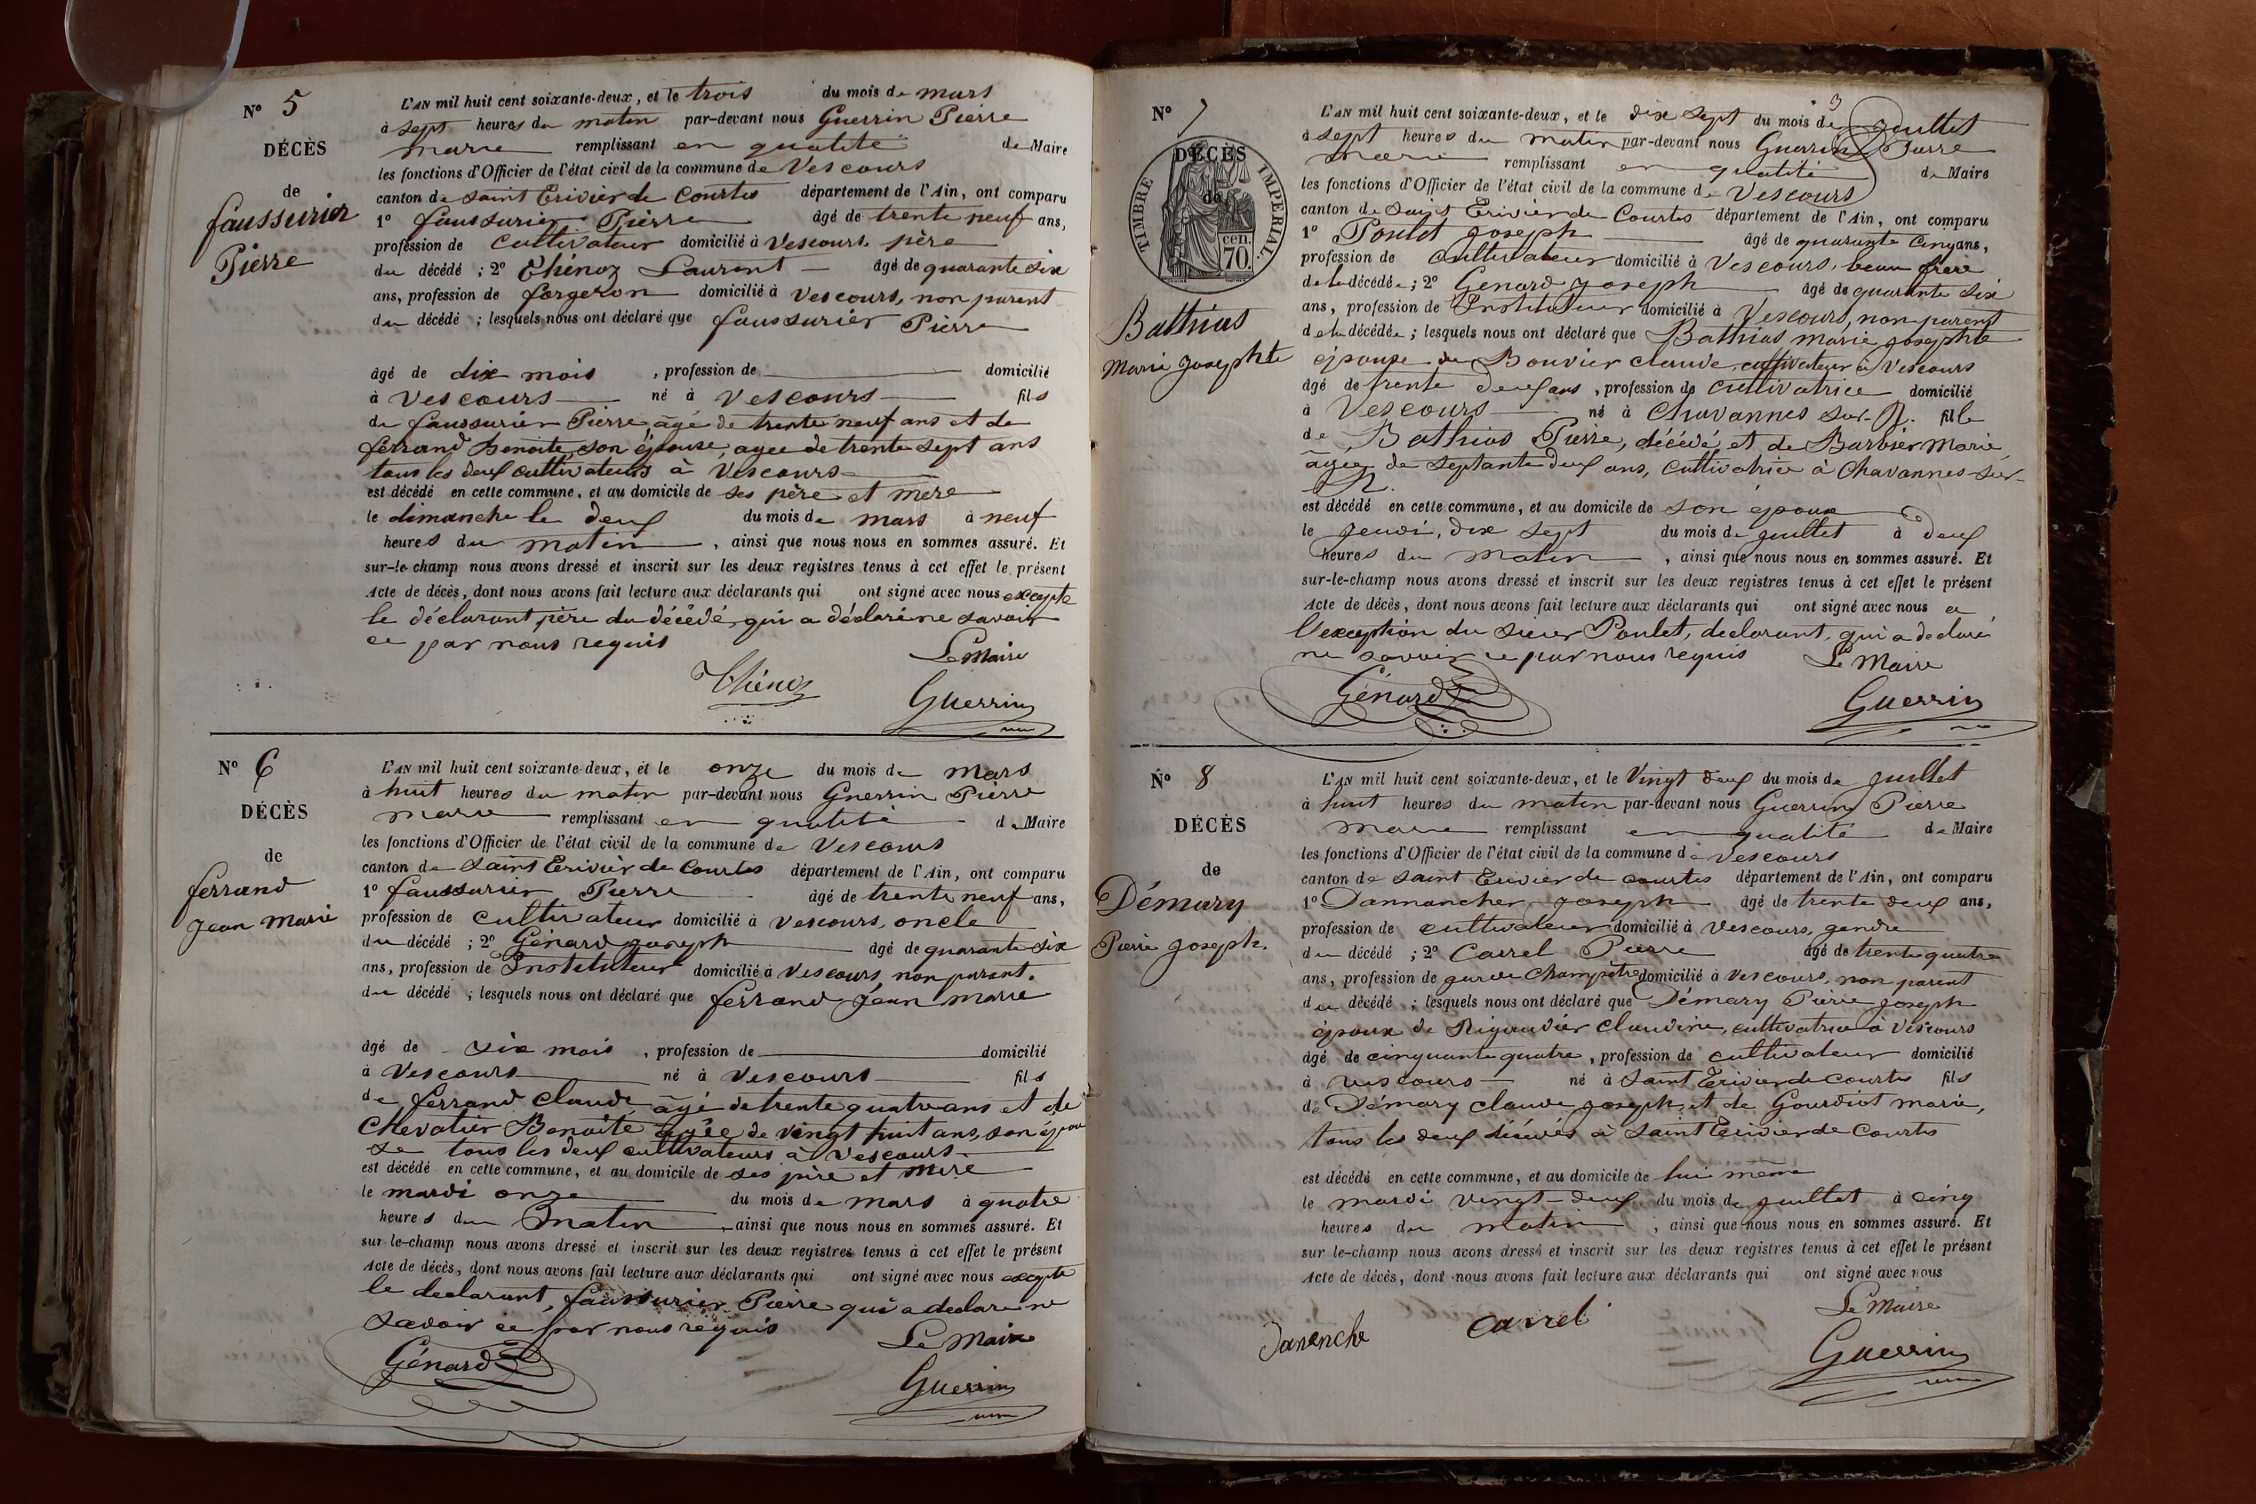 N° 5
DÉCÈS
de
faussurier
Pierre
L'AN mil huit cent soixante-deux, et le trois du mois de mars
à sept heures du matin par-devant nous Guerrin Pierre
marie remplissant en qualité de Maire
les fonctions d'Officier de l'état civil de la commune de Vescours
canton de saint Trivier de Courtes département de l'Ain, ont comparu
1° faussurier Pierre âgé de trente neuf ans,
profession de cultivateur domicilié à Vescours, père
du décédé ; 2° Thénoz Laurent âgé de quarante six
ans, profession de forgeron domicilié à Vescours, non parent
du décédé ; lesquels nous ont déclaré que faussurier Pierre
âgé de dix mois , profession de domicilié
à Vescours né à Vescours fils
de faussurier Pierre, âgé de trente neuf ans et de
ferrand Benoite son épouse, agee de trente sept ans
tous les deux cultivateurs à Vescours
est décédé en cette commune, et au domicile de ses père et mere
le dimanche le deux du mois de mars à neuf
heures du matin , ainsi que nous nous en sommes assuré. Et
sur-le champ nous avons dressé et inscrit sur les deux registres tenus à cet effet le présent
Acte de décès, dont nous avons fait lecture aux déclarants qui ont signé avec nous excepte
le déclarant, père du décédé, qui a déclaré ne savoir
ce par nous requis
Le Maire
Thénoz
Guerrin
N° 6
DÉCÈS
de
ferrand
Jean Marie
L'AN mil huit cent soixante-deux, et le onze du mois de Mars
à huit heures du matin par-devant nous Guerrin Pierre
marie remplissant en qualité de Maire
les fonctions d'Officier de l'état civil de la commune de Vescours
canton de saint Trivier de Courtes département de l'Ain, ont comparu
1° faussurier Pierre âgé de trente neuf ans,
profession de cultivateur domicilié à Vescours, oncle
du décédé ; 2° Génard joseph âgé de quarante six
ans, profession de Instituteur domicilié à Vescours, non parent.
du décédé ; lesquels nous ont déclaré que ferrand Jean marie
âgé de six mois , profession de domicilié
à Vescours né à Vescours fils
de ferrand claude âgé de trente quatre ans et de
Chevalier Benoite agée de vingt huit ans, son épou
se tous les deux cultivateurs à Vescours
est décédé en cette commune, et au domicile de ses père et mere
le mardi onze du mois de mars à quatre
heures du matin , ainsi que nous nous en sommes assuré. Et
sur le-champ nous avons dressé et inscrit sur les deux registres tenus à cet effet le présent
Acte de décès, dont nous avons fait lecture aux déclarants qui ont signé avec nous excepte
le declarant, faussurier Pierre qui a declaré ne
savoir ce par nous requis
Le Maire
Génard
Guerrin
N° 7
DÉCÈS
de
TIMBRE IMPERIAL.
cen.
70.
Bathias
Marie Josephte
3
L'AN mil huit cent soixante-deux, et le dix sept du mois de juillet
à sept heures du matin par-devant nous Guerrin Pierre
marie remplissant en qualité de Maire
les fonctions d'Officier de l'état civil de la commune de Vescours
canton de saint Trivier de Courtes département de l'Ain, ont comparu
1° Poulet joseph âgé de quarante cinq ans,
profession de cultivateur domicilié à Vescours, beau frère
de la décédée ; 2° Génard joseph âgé de quarante six
ans, profession de Instituteur domicilié à Vescours, non parent
de la décédée ; lesquels nous ont déclaré que Bathias marie josephte
épouse de Bouvier claude, cultivateur à Vescours
âgé de trente deux ans , profession de cultivatrice domicilié
à Vescours né à Chavannes sur-R. fille
de Bathias Pierre, décédé, et de Barbier Marie
âgée de septante deux ans, cultivatrice à Chavannes-sur-
R.
est décédé en cette commune, et au domicile de son epoux
le jeudi, dix sept du mois de juillet à deux
heures du matin , ainsi que nous nous en sommes assuré. Et
sur-le-champ nous avons dressé et inscrit sur les deux registres tenus à cet effet le présent
Acte de décès, dont nous avons fait lecture aux déclarants qui ont signé avec nous a
l'exception du sieur Poulet, declarant, qui a declaré
ne savoir ce par nous requis
Le Maire
Génard
Guerrin
N° 8
DÉCÈS
de
Démary
Pierre Joseph.
L'AN mil huit cent soixante-deux, et le Vingt deux du mois de juillet
à huit heures du matin par-devant nous Guerrin Pierre
marie remplissant en qualité de Maire
les fonctions d'Officier de l'état civil de la commune de Vescours
canton de saint Trivier de courtes département de l'Ain, ont comparu
1° Dannancher joseph âgé de trente deux ans,
profession de cultivateur domicilié à Vescours, gendre
du décédé ; 2° Carrel Pierre âgé de trente quatre
ans, profession de garde Champêtre domicilié à Vescours, non parent
du décédé ; lesquels nous ont déclaré que Démary Pierre joseph
époux de Rigaudier claudine, cultivatrice à Vescours
âgé de cinquante quatre , profession de cultivateur domicilié
à vescours né à saint Trivier de Courtes fils
de Démary Claude joseph, et de Gourdiot marie,
tous les deux décédés à saint Trivier de Courtes
est décédé en cette commune, et au domicile de lui même
le mardi vingt deux du mois de juillet à cinq
heures du matin , ainsi que nous nous en sommes assuré. Et
sur le-champ nous avons dressé et inscrit sur les deux registres tenus à cet effet le présent
Acte de décès, dont nous avons fait lecture aux déclarants qui ont signé avec nous
Le Maire
Dananche
carrel
Guerrin